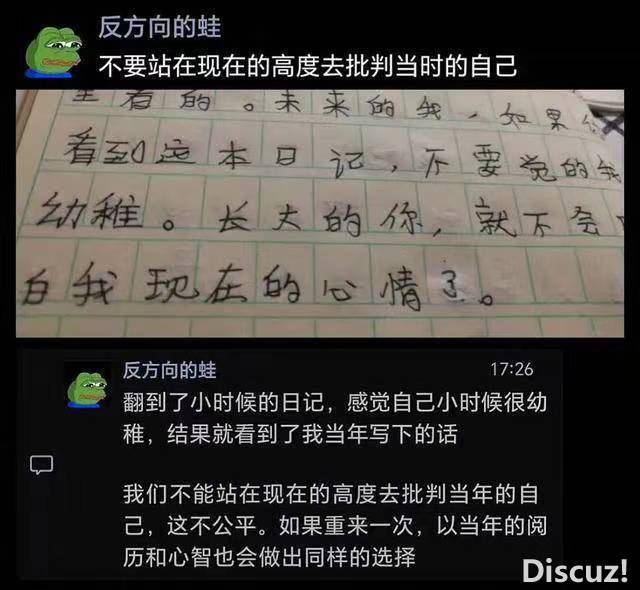 反方向的蛙
不要站在现在的高度去批判当时的自己
看的。未来的我,如果
看到这本日记,不要觉的我
幼稚。长大的你,就不会
白我现在的心情了。
反方向的蛙 17:26
翻到了小时候的日记,感觉自己小时候很幼
稚,结果就看到了我当年写下的话
我们不能站在现在的高度去批判当年的自
己,这不公平。如果重来一次,以当年的阅
历和心智也会做出同样的选择
Discuz!